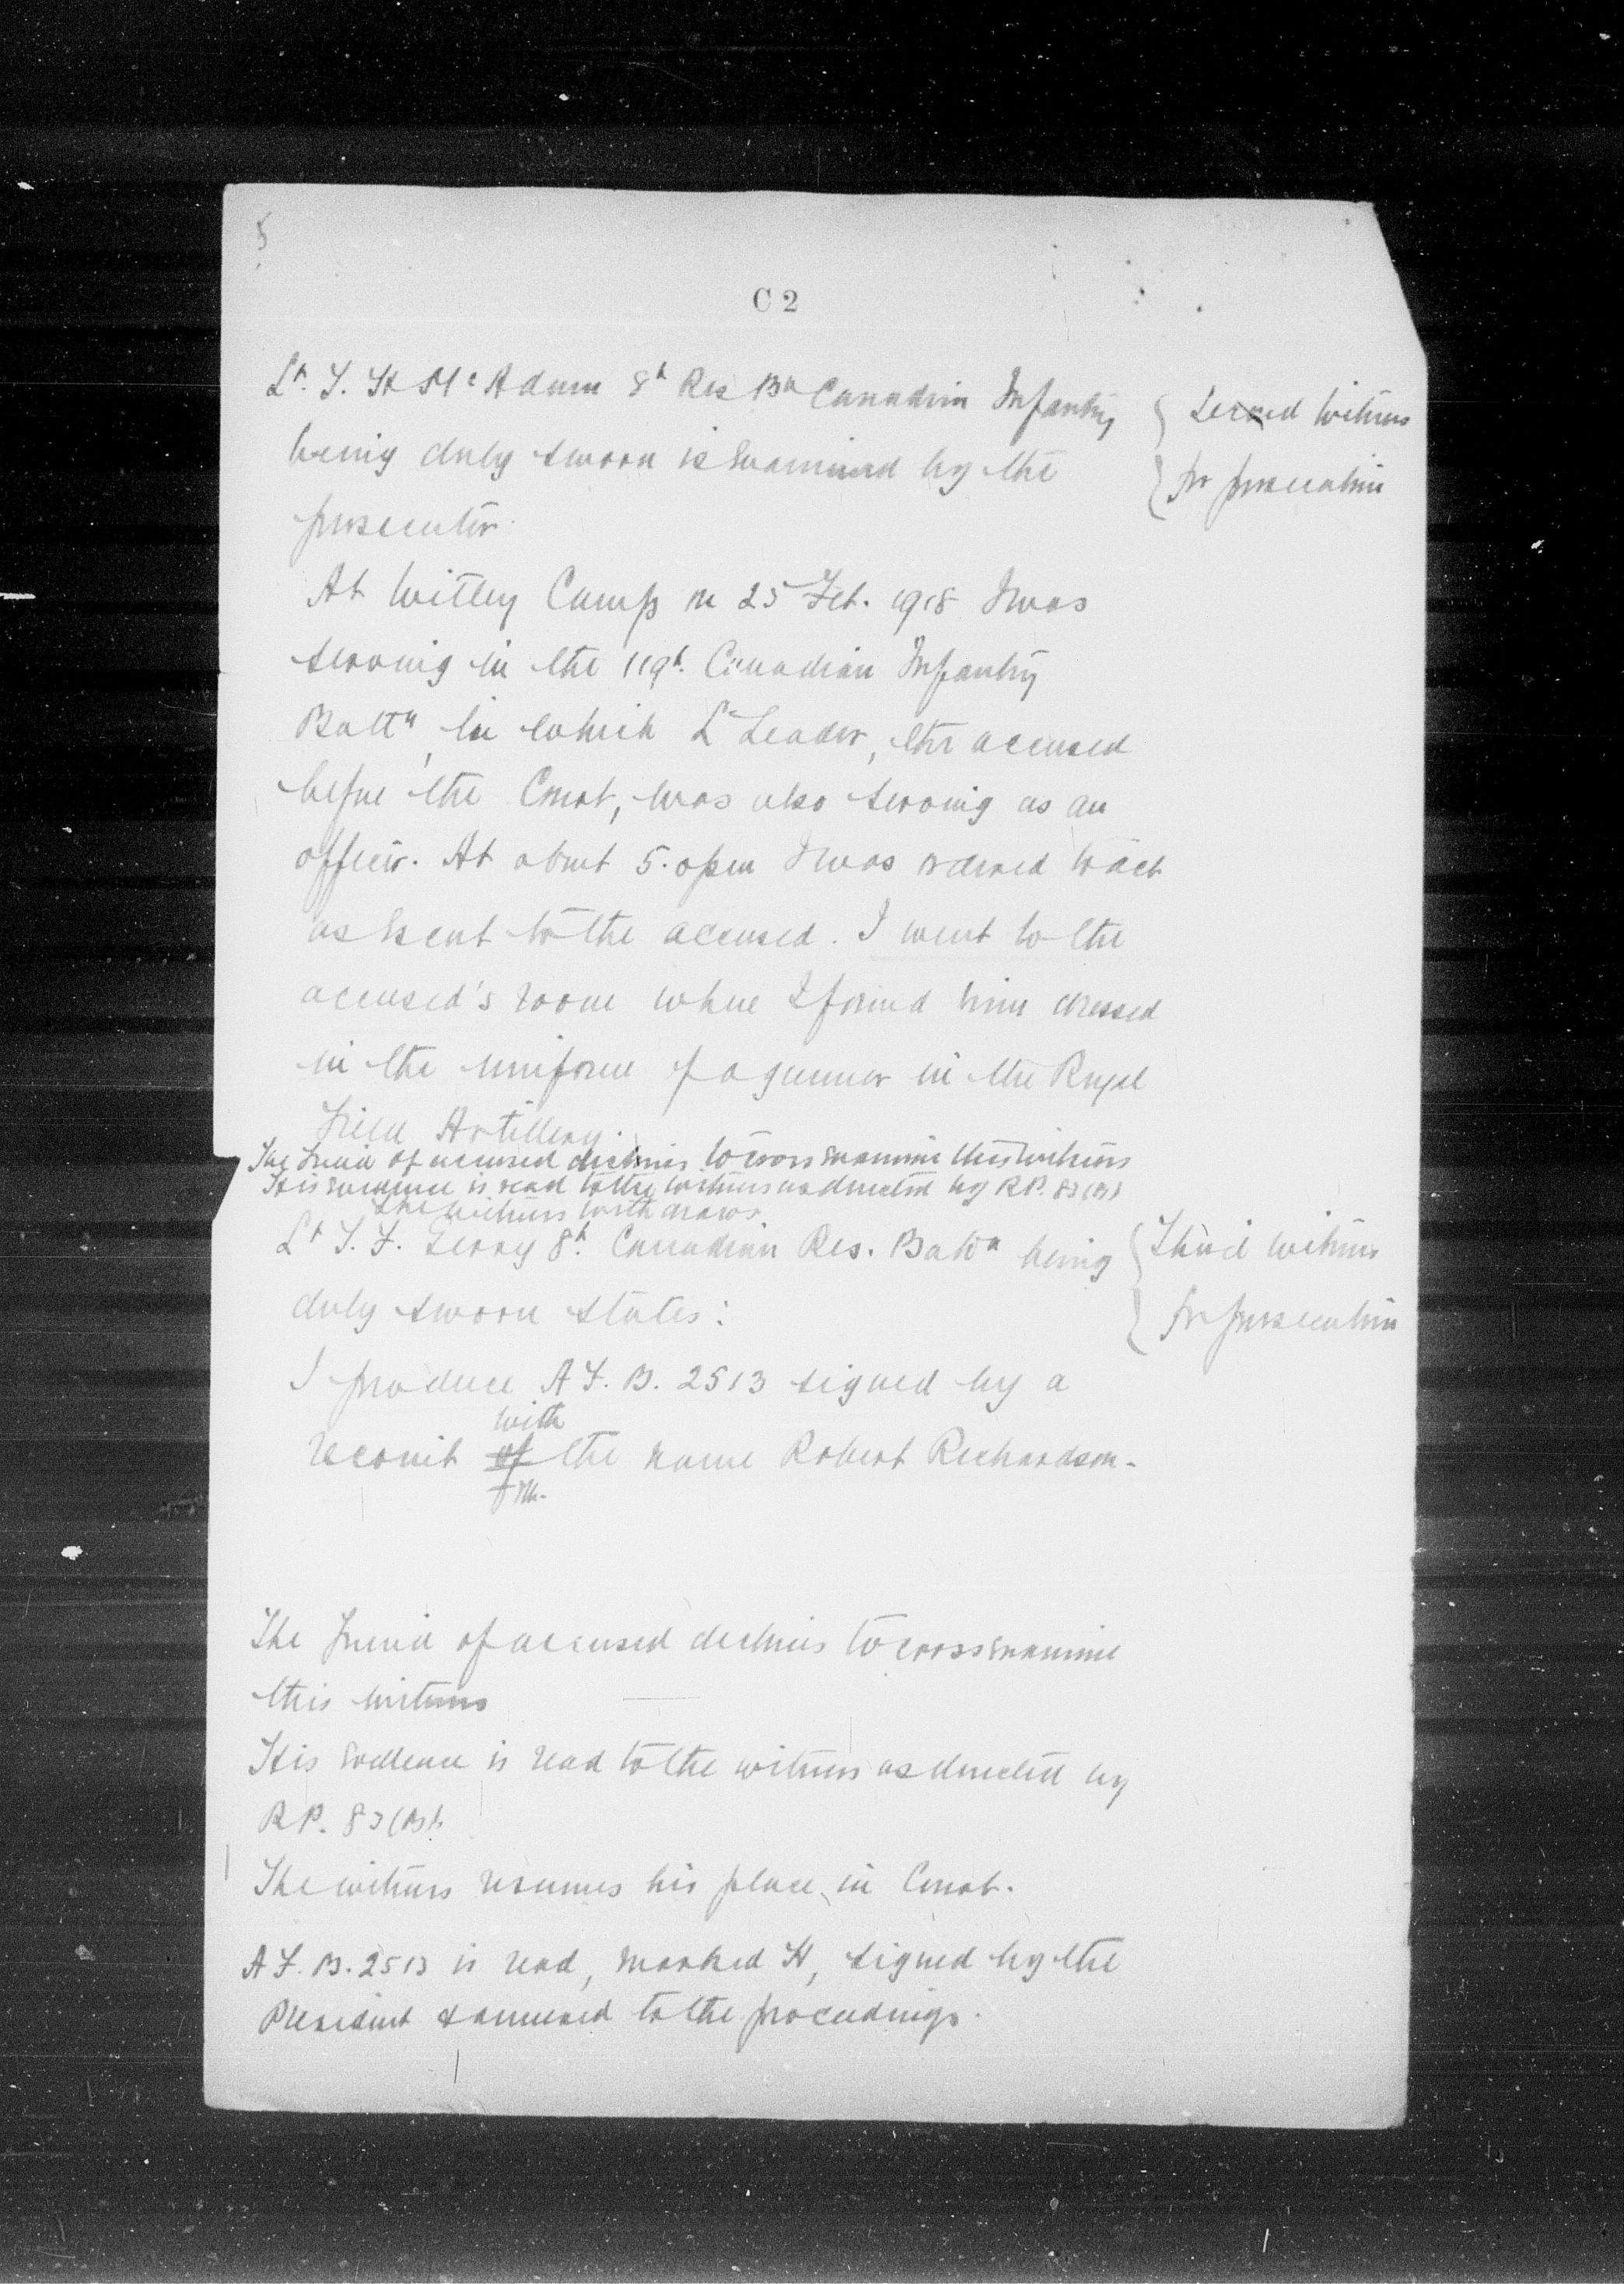 5
C 2
Lt. T. H McAdam 8th Res Bn Canadian Infantry
Second witness
being duly sworn is examined by the
for prosecution
prosecutor.
At Witley Camp on 25 Feb. 1918 I was
serving in the 119th. Canadian Infantry
Battn, in which Lt Leader, the accused
before the Court, was also serving as an
officer. At about 5.0pm I was ordered to act
as escort to the accused. I went to the
accused's room where I found him dressed
in the uniform of a gunner in the Royal
Field Artillery.
The friend of accused declines to cross examine this witness
His evidence is read to the witness as directed by RP. 83(B)
The witness withdraws.
Lt T. F. Terry 8th. Canadian Res. Battn being
Third witness
duly sworn states:
for prosecution
I produce A F. B. 2513 signed by a
with
recruit of the name Robert Richardson.
The friend of accused declines to cross examine
this witness
His evidence is read to the witness as directed by
RP. 83(B).
The witness resumes his place in Court.
A F. B. 2513 is read, marked H, signed by the
President & annexed to the proceedings.